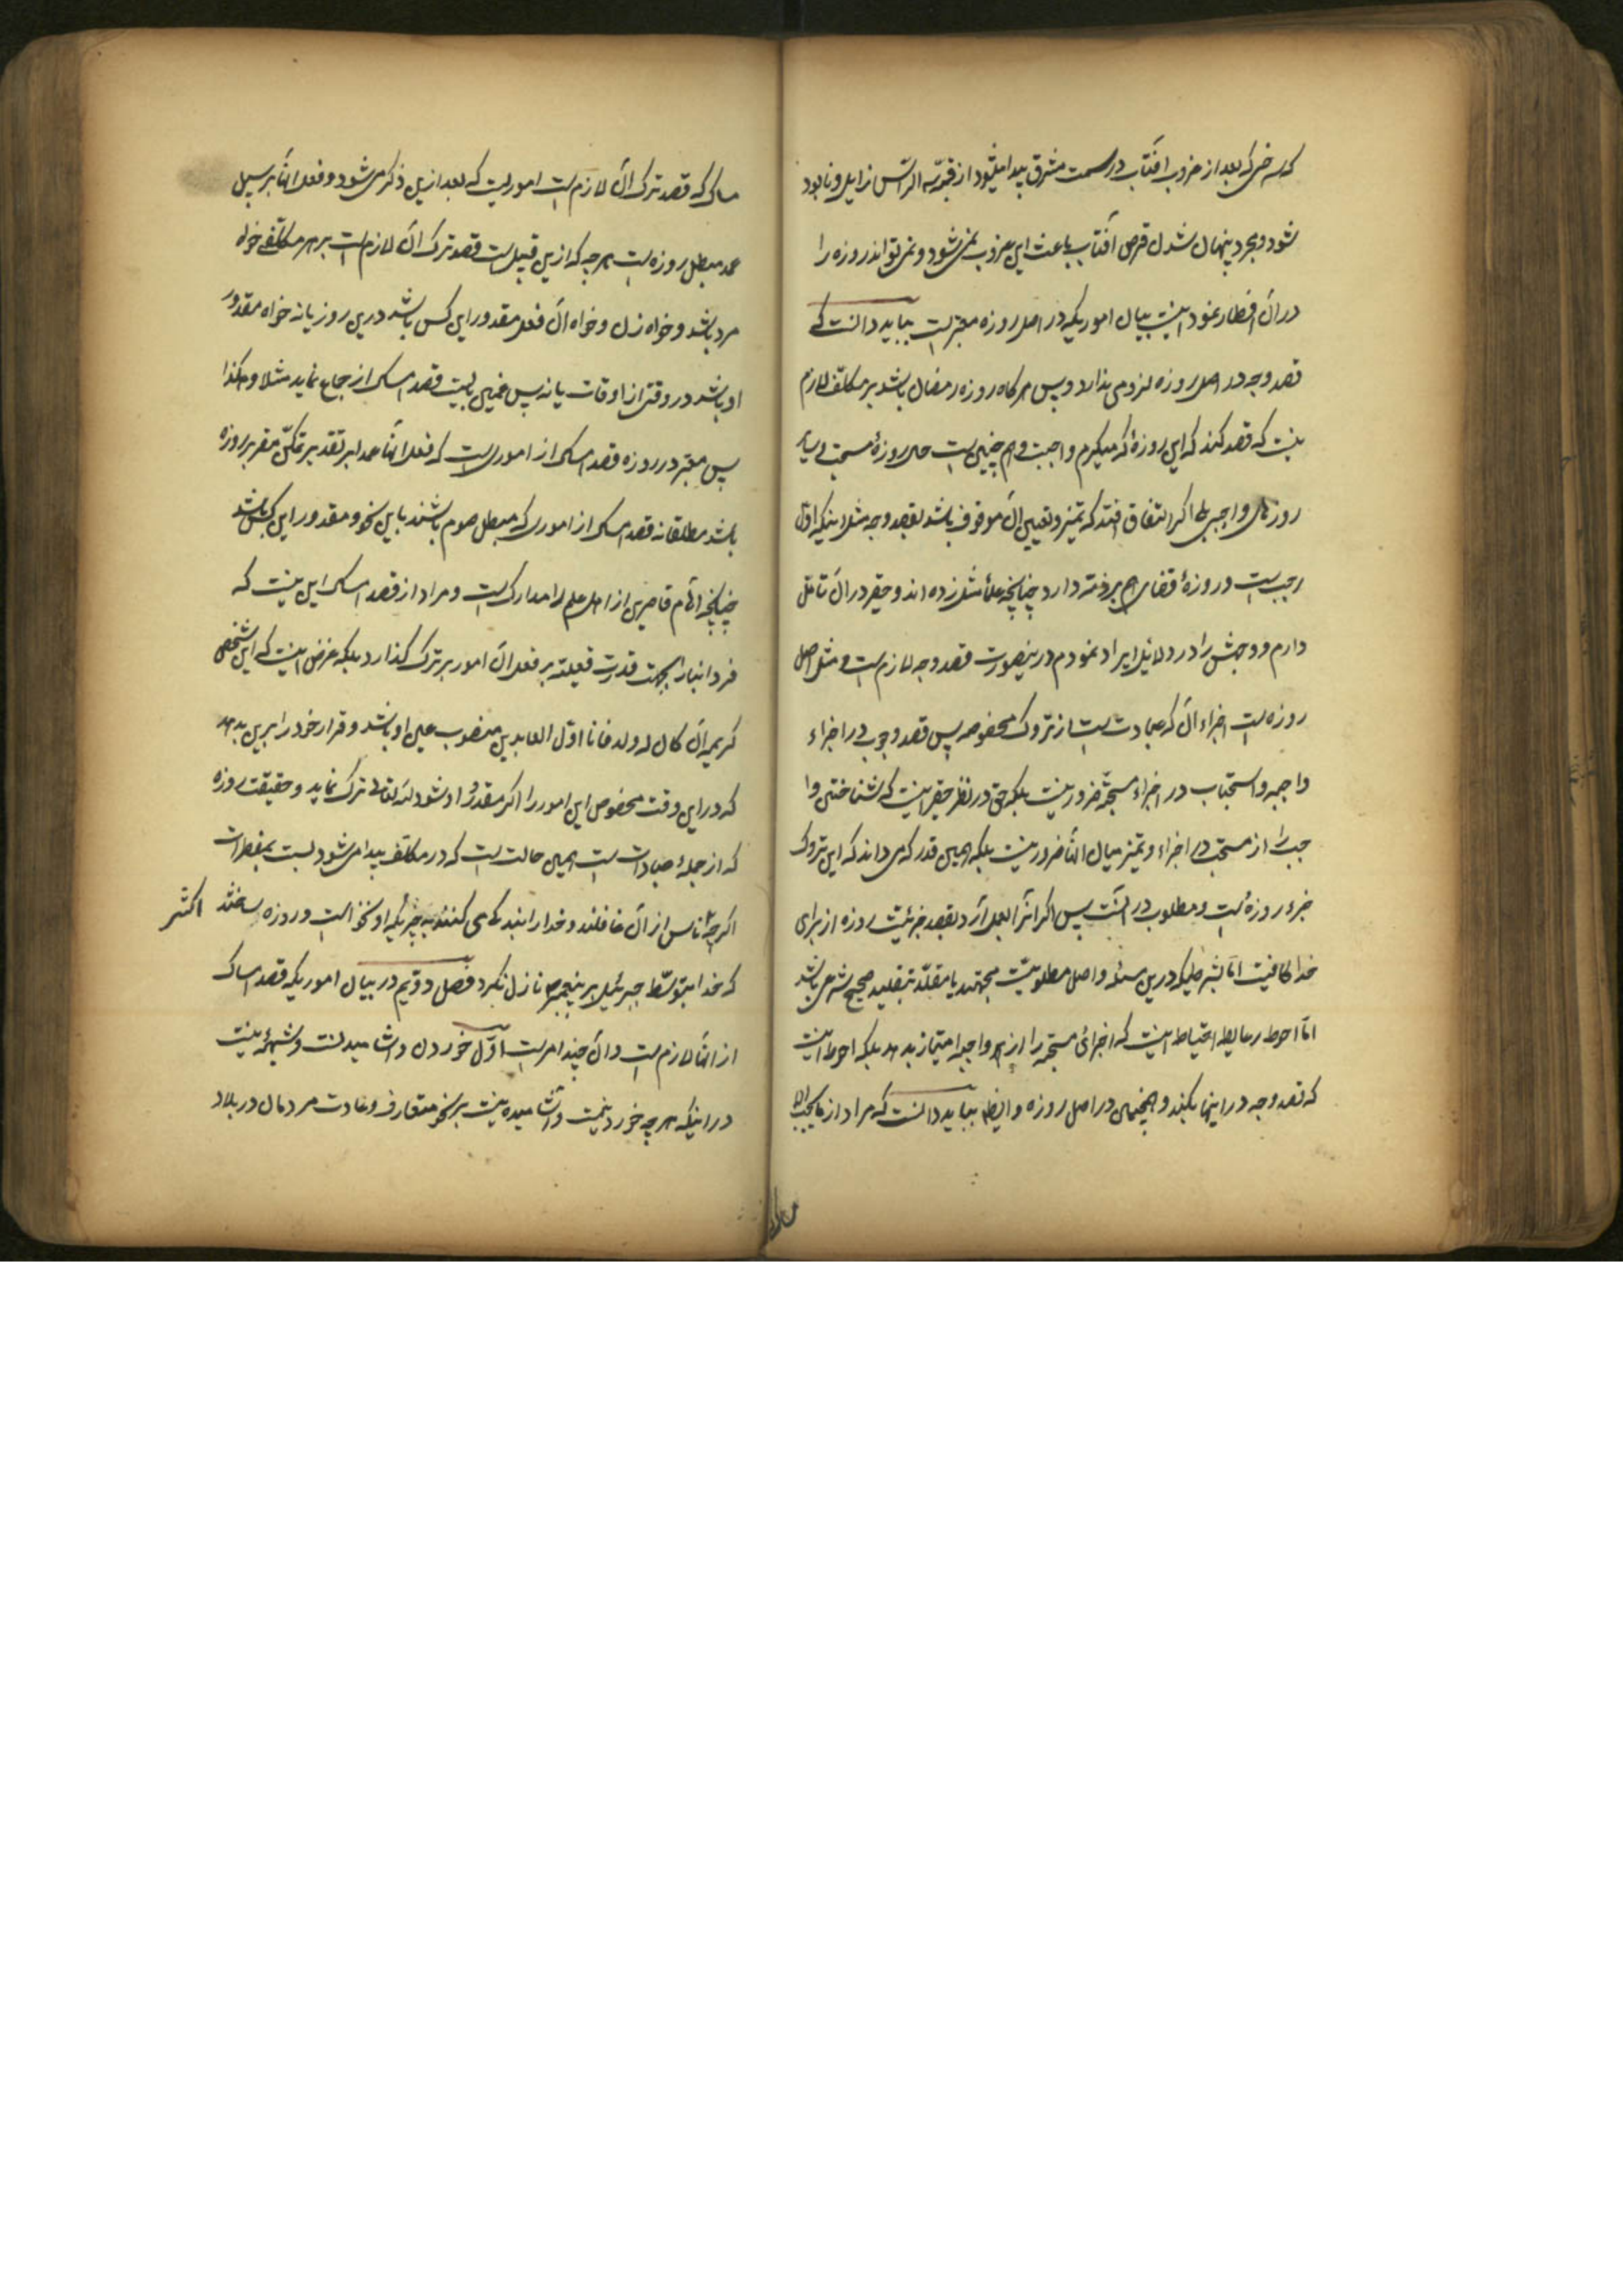 که سرخی که بعد از غروب آفتاب در سمت مشرق پیدا میشود از قمة سر او زایل و نابود
شود و بمجرد پنهان شدن قرص آفتاب باعث این غروب نمی‌شود و نمی‌تواند روزه را
در آن افطار نمود اینست بیان اموریکه در اصل روزه معتبر است بباید دانست که
قصد وجه در اصل روزه لزومی ندارد و پس هرگاه روزه رمضان باشد بر مکلف لازم
نیست که قصد کند که این روزهٔ که میگیرم واجبست و هم چنین است حال روزهٔ مستحب و سایر
روزهای واجبی بلی اگر اتفاق افتد که تمیز و تعیین آن موقوف باشد بقصد وجه مثل اینکه اول
رجب است و روزهٔ قضای هم بر ذمه دارد چنانچه علما مثل زده‌اند و حقیر در آن تامل
دارم و وجهش را در دلایل ایراد نمودم در ینصورت قصد وجه لازم است و مثل اصل
روزه است اجزاء آن که عبارت است از تروک مخصوصه پس قصد وجوب در اجزاء
واجبه و استحباب در اجزاء مستحبه ضرور نیست بلکه حتی در نظر حقیر اینست که شناختن وا
جب را از مستحب در اجزاء و تمیز میان آنها ضرور نیست بلکه همین قدر که می‌داند که این تروک
جزء روزه است و مطلوب در آنست پس اگر آنرا بعمل آرد بقصد جزئیت روزه از برای
خدا کافیست اما بشرطیکه درین مسئله و اصل مطلوبیت مجتهد یا مقلد بتقلید صحیح شرعی باشد
اما احوط رعایة احتیاط اینست که اجزای مستحبه را از اجزاء واجبه امتیاز بدهد بلکه احوط اینست
که قصد وجه در اینها بکند و همچنین در اصل روزه و ایضا بباید دانست که مراد از
ساک که قصد ترک آن لازم است اموریست که بعد ازین ذکر می‌شود و فعل آنها بر سبیل
عمد مبطل روزه است هرچه که ازین قبیل است قصد ترک آن لازم است بر هر مکلفی خواه
مرد باشد و خواه زن و خواه آن فعل مقدور این کس باشد درین روز یا نه خواه مقدور
او باشد در وقتی از اوقات یا نه پس عنین نیست قصد امساک از جماع نماید مثلا و هکذا
پس معتبر در روزه قصد امساک از اموریست که فعل آنها عمدا بر تقدیر تمکن مضر بر روزه
باشد مطلقا نه قصد امساک از اموری که مبطل صوم باشند باین نحو و مقدور این کس باشد
چنانچه اوهام قاصرین از اهل علم را مدارک است و مراد از قصد امساک این نیست که
فردا نبار بجهت قدرت فعلیه بر فعل آن امور بر ترک گذارد بلکه غرض اینست که این شخص
کریمه ان کان له ولد فانا اول العابدین منصوب عین او باشد و قرار خود را برین بدهد
که در این وقت مخصوص این امور را اگر مقدور او شود لله تعالی ترک نماید و حقیقت روزه
که از جملهٔ عبادات است همین حالت است که در مکلف پیدا می‌شود نسبت بمفطرات
اگرچه اکثر ناس از آن غافلند و خدا را بندگی می کنند به چیزیکه او نخواست و روزه ساختند
که خدا بتوسط جبرئیل بر پیغمبر ص نازل نکرد فصل دویم در بیان اموریکه قصد امساک
از آنها لازم است و آن چند امر است اول خوردن و آشامیدنست و شبههٔ نیست
در اینکه هر چه خوردنیست و آشامیدنیست بر نحو متعارف و عادت مردمان در بلاد